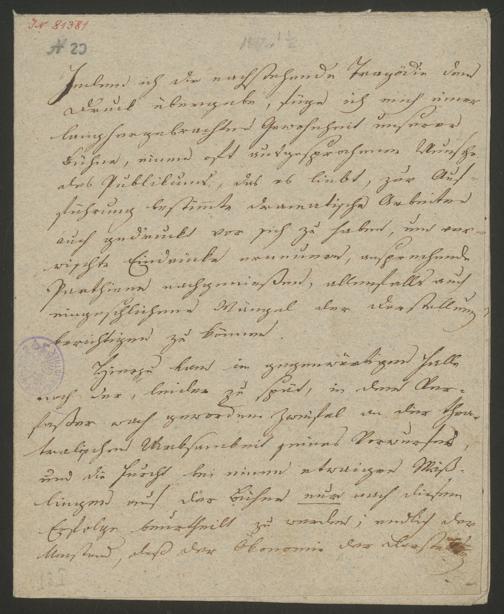 IN 81381
A 20
Indem ich die nachstehende Tragödie dem
Druck übergebe, füge ich mich einer
langhergebrachten Gewohnheit unserer
Bühne, einem oft ausgesprochenen Wunsche
des Publikums, das es liebt, zur Auf-
führung bestimmte dramatische Arbeiten
auch gedruckt vor sich zu haben, um ver-
wischte Eindrücke erneuern, ansprechende
Parthieen nachgenießen, allenfalls auch
eingeschlichene Mängel der Darstellung
berichtigen zu können.
Hiezu kam im gegenwärtigen Falle
noch der, leider zu spät, in dem Ver-
fasser wach gewordene Zweifel an der thea-
tralischen Wirksamkeit seines Vorwurfes,
und die Furcht bei einem etwaigen Miß-
lingen auf der Bühne nur nach diesem
Erfolge beurtheilt zu werden; endlich der
Umstand, daß der Ökonomie der